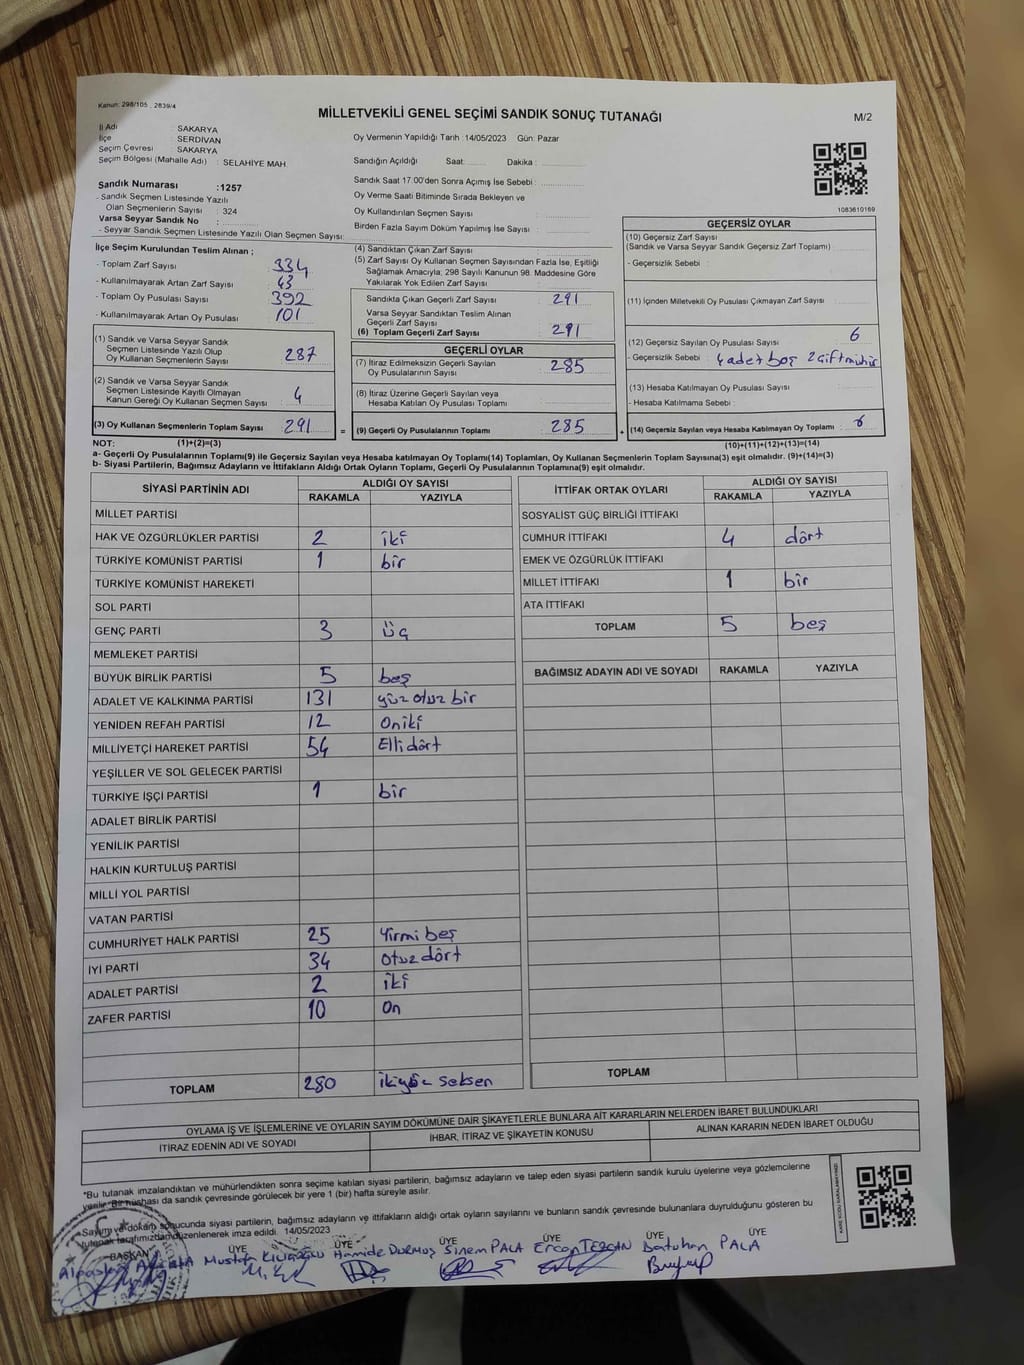 Kanun: 298/105 , 2839/4
MİLLETVEKİLİ GENEL SEÇİMİ SANDIK SONUÇ TUTANAĞI
M/2
İl Adı : SAKARYA
İlçe : SERDİVAN
Seçim Çevresi : SAKARYA
Seçim Bölgesi (Mahalle Adı) : SELAHİYE MAH.
Oy Vermenin Yapıldığı Tarih :14/05/2023 Gün: Pazar
Sandığın Açıldığı Saat: Dakika :
Sandık Saat 17.00'den Sonra Açımış İse Sebebi :
Oy Verme Saati Bitiminde Sırada Bekleyen ve
Oy Kullandırılan Seçmen Sayısı :
Birden Fazla Sayım Döküm Yapılmış İse Sayısı :
1083610169
Sandık Numarası :1257
- Sandık Seçmen Listesinde Yazılı
Olan Seçmenlerin Sayısı : 324
Varsa Seyyar Sandık No :
- Seyyar Sandık Seçmen Listesinde Yazılı Olan Seçmen Sayısı:
İlçe Seçim Kurulundan Teslim Alınan ;
- Toplam Zarf Sayısı : 334
- Kullanılmayarak Artan Zarf Sayısı : 43
- Toplam Oy Pusulası Sayısı : 392
- Kullanılmayarak Artan Oy Pusulası : 101
(1) Sandık ve Varsa Seyyar Sandık
Seçmen Listesinde Yazılı Olup
Oy Kullanan Seçmenlerin Sayısı : 287
(2) Sandık ve Varsa Seyyar Sandık
Seçmen Listesinde Kayıtlı Olmayan
Kanun Gereği Oy Kullanan Seçmen Sayısı : 4
(3) Oy Kullanan Seçmenlerin Toplam Sayısı : 291 =
(4) Sandıktan Çıkan Zarf Sayısı
(5) Zarf Sayısı Oy Kullanan Seçmen Sayısından Fazla İse, Eşitliği
Sağlamak Amacıyla, 298 Sayılı Kanunun 98. Maddesine Göre
Yakılarak Yok Edilen Zarf Sayısı :
Sandıkta Çıkan Geçerli Zarf Sayısı : 291
Varsa Seyyar Sandıktan Teslim Alınan
Geçerli Zarf Sayısı :
(6) Toplam Geçerli Zarf Sayısı : 291
GEÇERLİ OYLAR
(7) İtiraz Edilmeksizin Geçerli Sayılan
Oy Pusulalarının Sayısı : 285
(8) İtiraz Üzerine Geçerli Sayılan veya
Hesaba Katılan Oy Pusulaları Toplamı :
(9) Geçerli Oy Pusulalarının Toplamı : 285 +
GEÇERSİZ OYLAR
(10) Geçersiz Zarf Sayısı
(Sandık ve Varsa Seyyar Sandık Geçersiz Zarf Toplamı) :
- Geçersizlik Sebebi :
(11) İçinden Milletvekili Oy Pusulası Çıkmayan Zarf Sayısı :
(12) Geçersiz Sayılan Oy Pusulası Sayısı : 6
- Geçersizlik Sebebi : 4 adet boş 2 çift mühür
(13) Hesaba Katılmayan Oy Pusulası Sayısı :
- Hesaba Katılmama Sebebi :
(14) Geçersiz Sayılan veya Hesaba Katılmayan Oy Toplamı : 6
NOT: (1)+(2)=(3) (10)+(11)+(12)+(13)=(14)
a- Geçerli Oy Pusulalarının Toplamı(9) ile Geçersiz Sayılan veya Hesaba katılmayan Oy Toplamı(14) Toplamları, Oy Kullanan Seçmenlerin Toplam Sayısına(3) eşit olmalıdır. (9)+(14)=(3)
b- Siyasi Partilerin, Bağımsız Adayların ve İttifakların Aldığı Ortak Oyların Toplamı, Geçerli Oy Pusulalarının Toplamına(9) eşit olmalıdır.
SİYASİ PARTİNİN ADI ALDIĞI OY SAYISI
RAKAMLA YAZIYLA
MİLLET PARTİSİ
HAK VE ÖZGÜRLÜKLER PARTİSİ 2 iki
TÜRKİYE KOMÜNİST PARTİSİ 1 bir
TÜRKİYE KOMÜNİST HAREKETİ
SOL PARTİ
GENÇ PARTİ 3 üç
MEMLEKET PARTİSİ
BÜYÜK BİRLİK PARTİSİ 5 beş
ADALET VE KALKINMA PARTİSİ 131 yüz otuz bir
YENİDEN REFAH PARTİSİ 12 Oniki
MİLLİYETÇİ HAREKET PARTİSİ 54 Elli dört
YEŞİLLER VE SOL GELECEK PARTİSİ
TÜRKİYE İŞÇİ PARTİSİ 1 bir
ADALET BİRLİK PARTİSİ
YENİLİK PARTİSİ
HALKIN KURTULUŞ PARTİSİ
MİLLİ YOL PARTİSİ
VATAN PARTİSİ
CUMHURİYET HALK PARTİSİ 25 Yirmi beş
İYİ PARTİ 34 Otuz dört
ADALET PARTİSİ 2 iki
ZAFER PARTİSİ 10 On
TOPLAM 280 ikiyüz seksen
İTTİFAK ORTAK OYLARI ALDIĞI OY SAYISI
RAKAMLA YAZIYLA
SOSYALİST GÜÇ BİRLİĞİ İTTİFAKI
CUMHUR İTTİFAKI 4 dört
EMEK VE ÖZGÜRLÜK İTTİFAKI
MİLLET İTTİFAKI 1 bir
ATA İTTİFAKI
TOPLAM 5 beş
BAĞIMSIZ ADAYIN ADI VE SOYADI RAKAMLA YAZIYLA
TOPLAM
OYLAMA İŞ VE İŞLEMLERİNE VE OYLARIN SAYIM DÖKÜMÜNE DAİR ŞİKAYETLERLE BUNLARA AİT KARARLARIN NELERDEN İBARET BULUNDUKLARI
İTİRAZ EDENİN ADI VE SOYADI İHBAR, İTİRAZ VE ŞİKAYETİN KONUSU ALINAN KARARIN NEDEN İBARET OLDUĞU
*Bu tutanak imzalandıktan ve mühürlendikten sonra seçime katılan siyasi partilerin, bağımsız adayların ve talep eden siyasi partilerin sandık kurulu üyelerine veya gözlemcilerine
verilir. Bir nüshası da sandık çevresinde görülecek bir yere 1 (bir) hafta süreyle asılır.
*Sayım ve döküm sonucunda siyasi partilerin, bağımsız adayların ve ittifakların aldığı ortak oyların sayılarını ve bunların sandık çevresinde bulunanlara duyrulduğunu gösteren bu
tutanak tarafımızdan düzenlenerek imza edildi. 14/05/2023
BAŞKAN ÜYE ÜYE ÜYE ÜYE ÜYE ÜYE
Mustafa Hamide DURMUŞ Sinem PALA Ercan TEZCAN Batuhan PALA